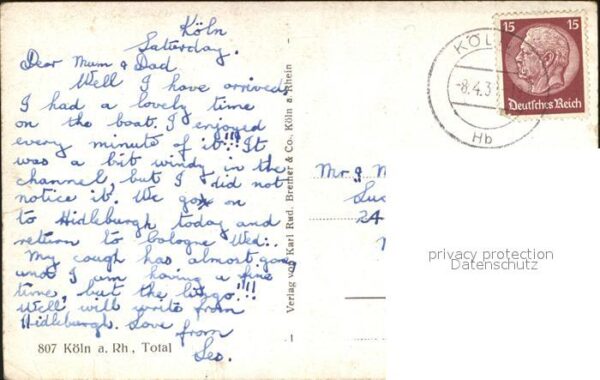 Köln
Saturday.
Dear Mum & Dad
Well I have arrived.
I had a lovely time
on the boat. I enjoyed
every minute of it!!! It
was a bit windy in the
channel, but I did not
notice it. We go on
to Hidleburgh today and
return to Cologne Wed:.
My cough has almost gone
and I am having a fine
time, but the lingo!!!
Well will write from
Hidleburgh. Love
from
Les.
807 Köln a. Rh., Total
Verlag von Karl Rud. Bremer & Co., Köln a. Rhein
KÖL
-8.4.3
Hb
15 15
Deutsches Reich
Mr &
24
privacy protection
Datenschutz